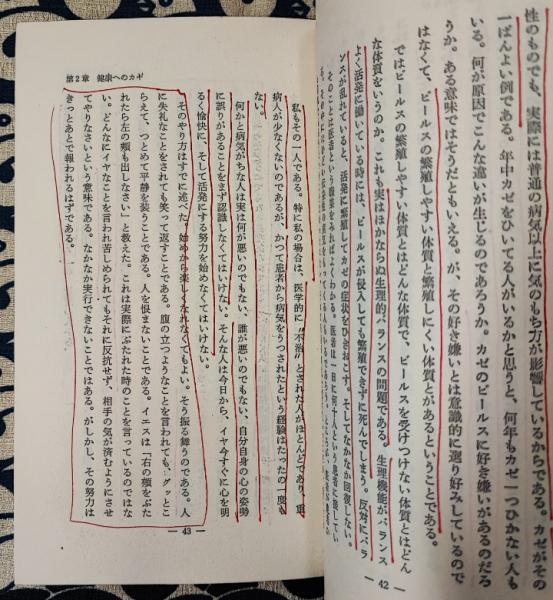 性のものでも、実際には普通の病気以上に気のもち方が影響しているからである。カゼがその
一ばんよい例である。年中カゼをひいてる人がいるかと思うと、何年もカゼ一つひかない人も
いる。何が原因でこんな違いが生じるのであろうか。カゼのビールスに好き嫌いがあるのだろ
うか。ある意味ではそうだともいえる。が、その好き嫌いとは意識的に選り好みしているので
はなくて、ビールスの繁殖しやすい体質と繁殖しにくい体質とがあるということである。
ではビールスの繁殖しやすい体質とはどんな体質で、ビールスを受けつけない体質とはどん
な体質をいうのか。これも実はほかならぬ生理的バランスの問題である。生理機能がバランス
よく活発に働いている時には、ビールスが侵入しても繁殖できずに死んでしまう。反対にバラ
ンスが乱れていると、活発に繁殖してカゼの症状をひきおこす。そしてなかなか回復しない。
そのことは医者という職業をみればよくわかる。医者は一日に何十人という患者に接してい
— 42 —
第2章 健康へのカギ
私もその一人である。特に私の場合は、医学的に〝不治〟とされた人がほとんどであり、重
病人が少なくないのであるが、かつて患者から病気をうつされたという経験はたったの一度も
ない。
何かと病気がちな人は実は何が悪いのでもない、誰が悪いのでもない、自分自身の心の姿勢
に誤りがあることをまず認識しなくてはいけない。そんな人は今日から、イヤ今すぐに心を明
るく愉快に、そして活発にする努力を始めなくてはいけない。
そのやり方はすでに述べた。始めから楽しくなれなくてもよい。そう振る舞うのである。人
に失礼なことをされても笑って返すことである。腹の立つようなことを言われても、グッとこ
らえて、つとめて平静を装うことである。人を恨まないことである。イエスは「右の頬をぶた
れたら左の頬も出しなさい」と教えた。これは実際にぶたれた時のことを言っているのではな
い。どんなにイヤなことを言われ苦しめられてもそれに反抗せず、相手の気が済むようにさせ
てやりなさいという意味である。なかなか実行できないことではある。がしかし、その努力は
きっとあとで報われるはずである。
— 43 —